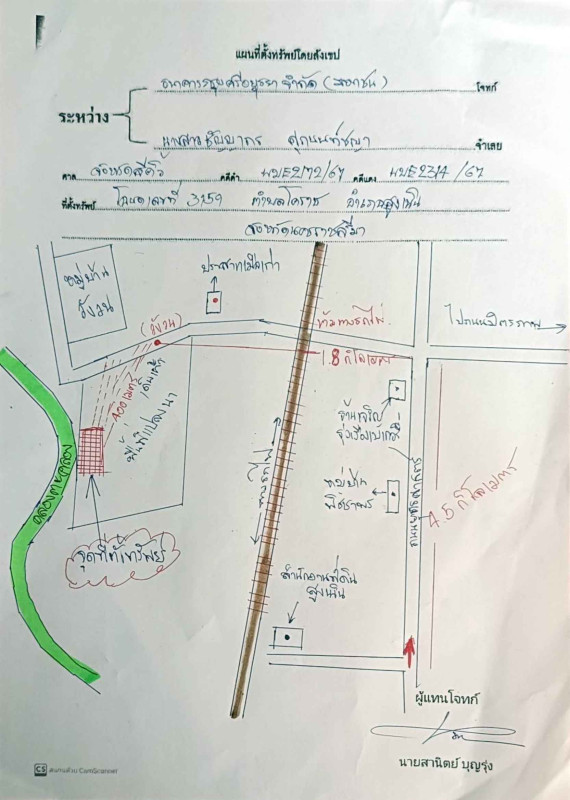 แผนที่ตั้งทรัพย์โดยสังเขป
ธนาคารกรุงศรีอยุธยา จำกัด (มหาชน) โจทก์
ระหว่าง
นางสาวธัญญาภร จำเลย
ศาล จังหวัดสีคิ้ว คดีดำ ผบE2172/67 คดีแดง ผบE2374/67
ที่ตั้งทรัพย์ โฉนดเลขที่ 3159 ตำบลโคราช อำเภอสูงเนิน
จังหวัดนครราชสีมา
หมู่บ้าน
วังวน
ปราสาทเมืองเก่า
(วังวน)
ข้ามทางรถไฟ
ไปถนนมิตรภาพ
1.8 กิโลเมตร
400 เมตร
เดินเท้า
พื้นที่แปลงนา
คลองตะคลอง
ทางรถไฟ
ร้านเจริญ
รุ่งเรืองเบเกอรี่
หมู่บ้าน
ถนน
4.5 กิโลเมตร
จุดที่ตั้งทรัพย์
สำนักงานที่ดิน
สูงเนิน
ผู้แทนโจทก์
นายสานิตย์ บุญรุ่ง
CS สแกนด้วย CamScanner